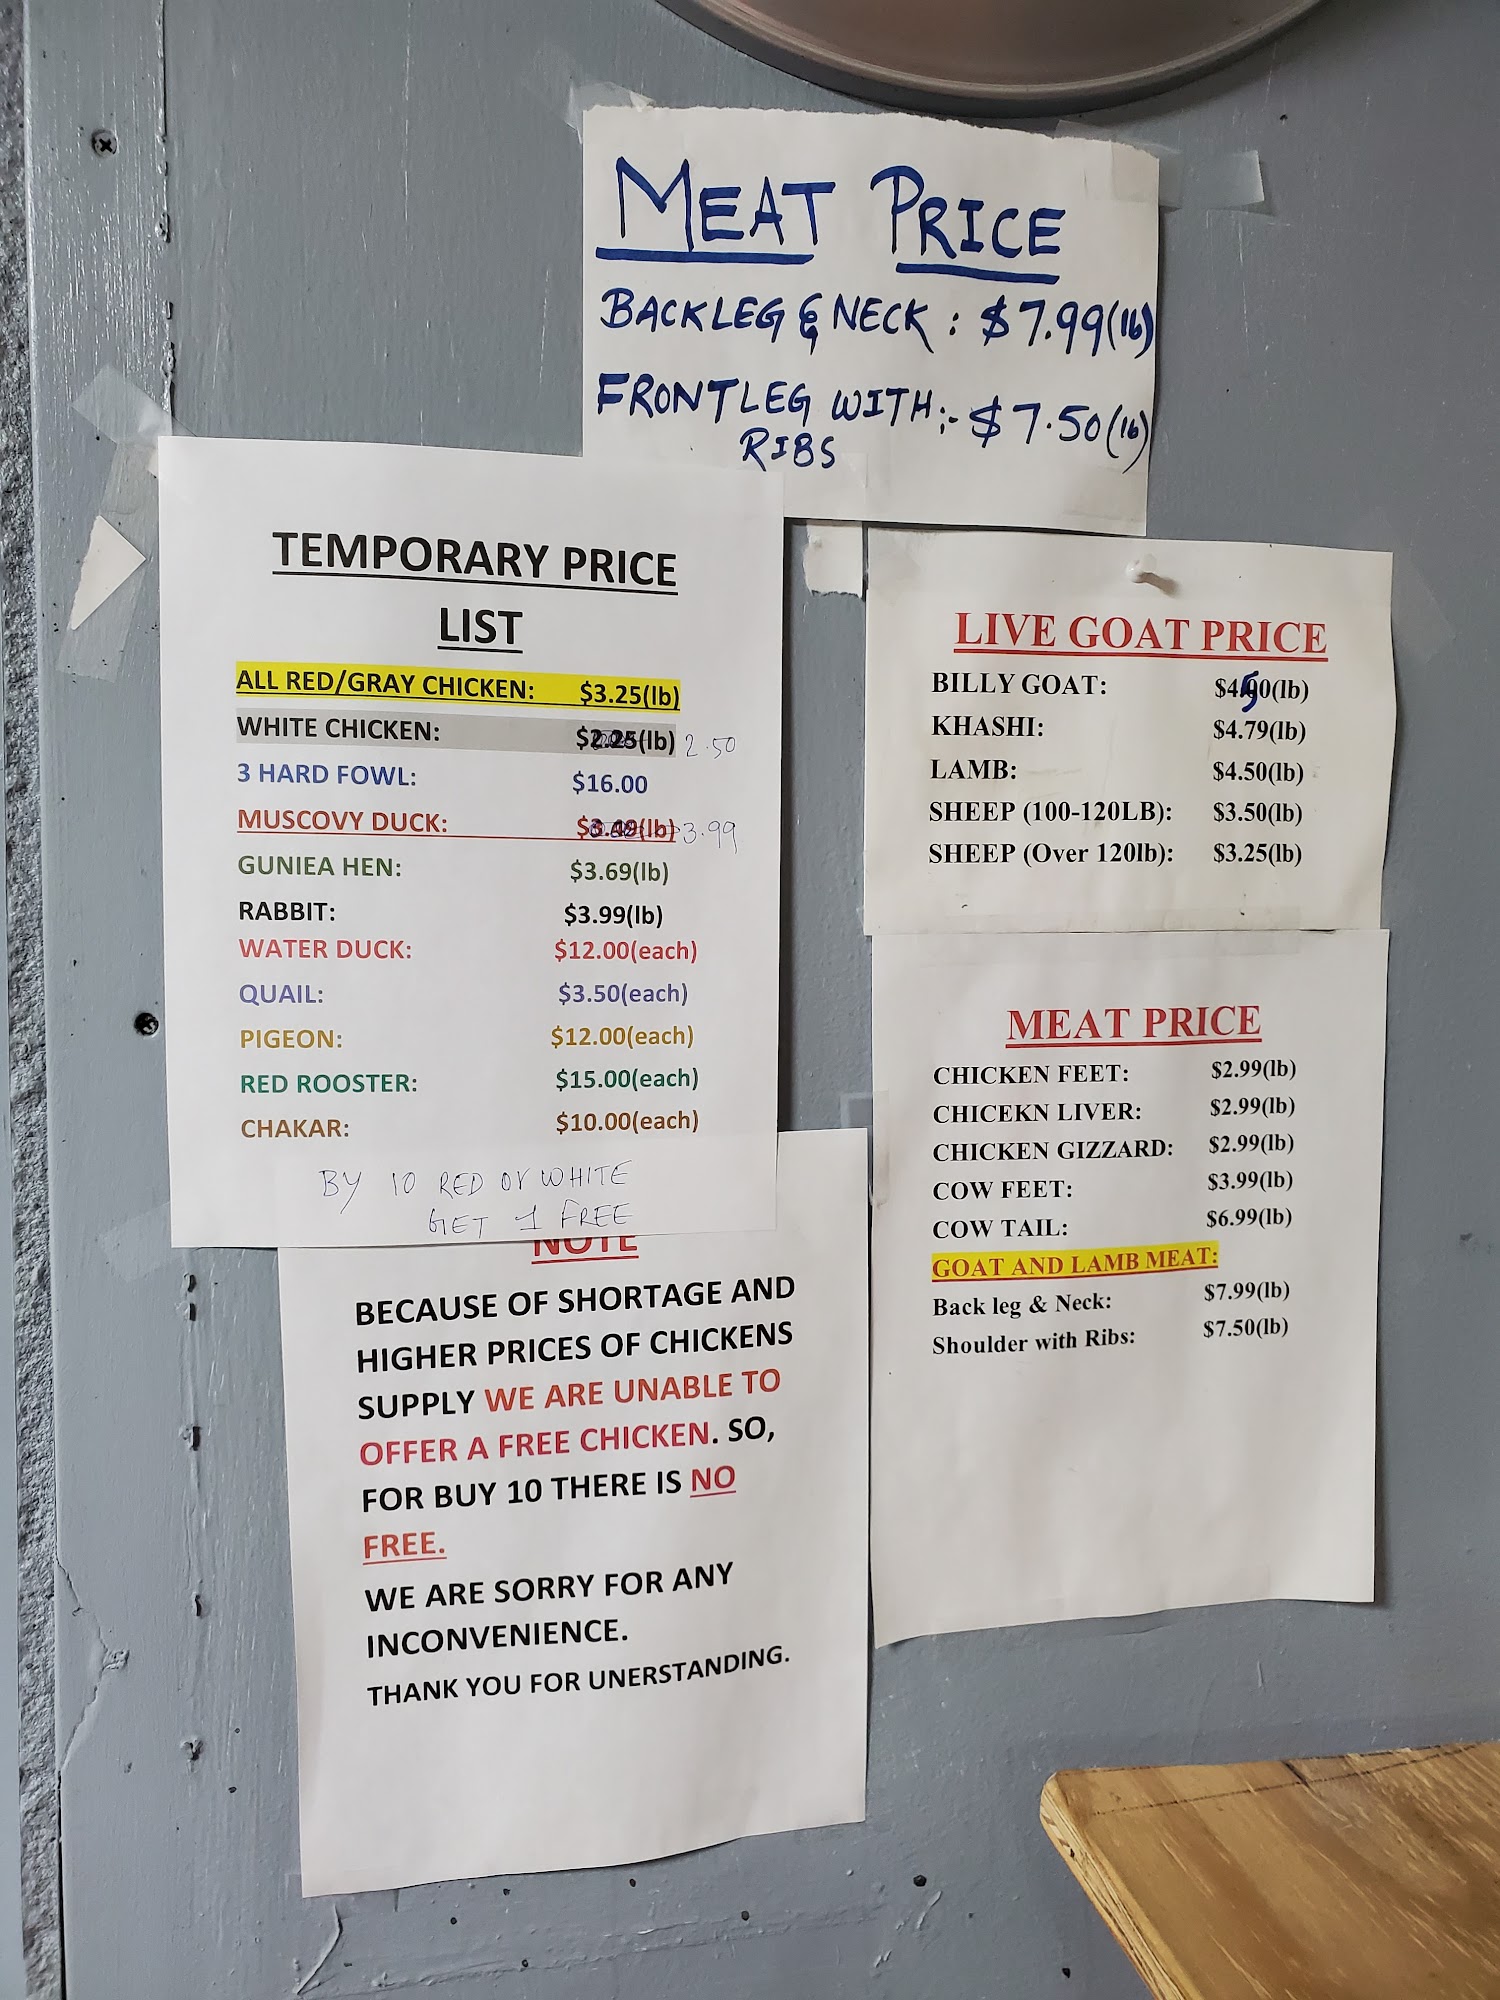 MEAT PRICE
BACKLEG & NECK : $7.99(lb)
FRONTLEG WITH :- $7.50(lb)
RIBS
TEMPORARY PRICE
LIST
ALL RED/GRAY CHICKEN: $3.25(lb)
WHITE CHICKEN: $2.25(lb) 2.50
3 HARD FOWL: $16.00
MUSCOVY DUCK: $3.49(lb) 3.99
GUNIEA HEN: $3.69(lb)
RABBIT: $3.99(lb)
WATER DUCK: $12.00(each)
QUAIL: $3.50(each)
PIGEON: $12.00(each)
RED ROOSTER: $15.00(each)
CHAKAR: $10.00(each)
BY 10 RED or WHITE
GET 1 FREE
NOTE
BECAUSE OF SHORTAGE AND
HIGHER PRICES OF CHICKENS
SUPPLY WE ARE UNABLE TO
OFFER A FREE CHICKEN. SO,
FOR BUY 10 THERE IS NO
FREE.
WE ARE SORRY FOR ANY
INCONVENIENCE.
THANK YOU FOR UNERSTANDING.
LIVE GOAT PRICE
BILLY GOAT: $4.50(lb)
KHASHI: $4.79(lb)
LAMB: $4.50(lb)
SHEEP (100-120LB): $3.50(lb)
SHEEP (Over 120lb): $3.25(lb)
MEAT PRICE
CHICKEN FEET: $2.99(lb)
CHICEKN LIVER: $2.99(lb)
CHICKEN GIZZARD: $2.99(lb)
COW FEET: $3.99(lb)
COW TAIL: $6.99(lb)
GOAT AND LAMB MEAT:
Back leg & Neck: $7.99(lb)
Shoulder with Ribs: $7.50(lb)